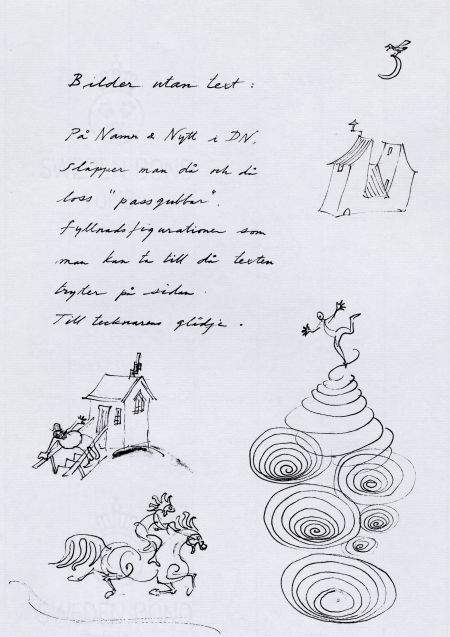 Bilder utan text:
På Namn & Nytt i DN,
släpper man då och då
loss "passgubbar".
Fyllnadsfigurationer som
man kan ta till då texten
tryter på sidan.
Till tecknarens glädje.
SWEDEN BOND